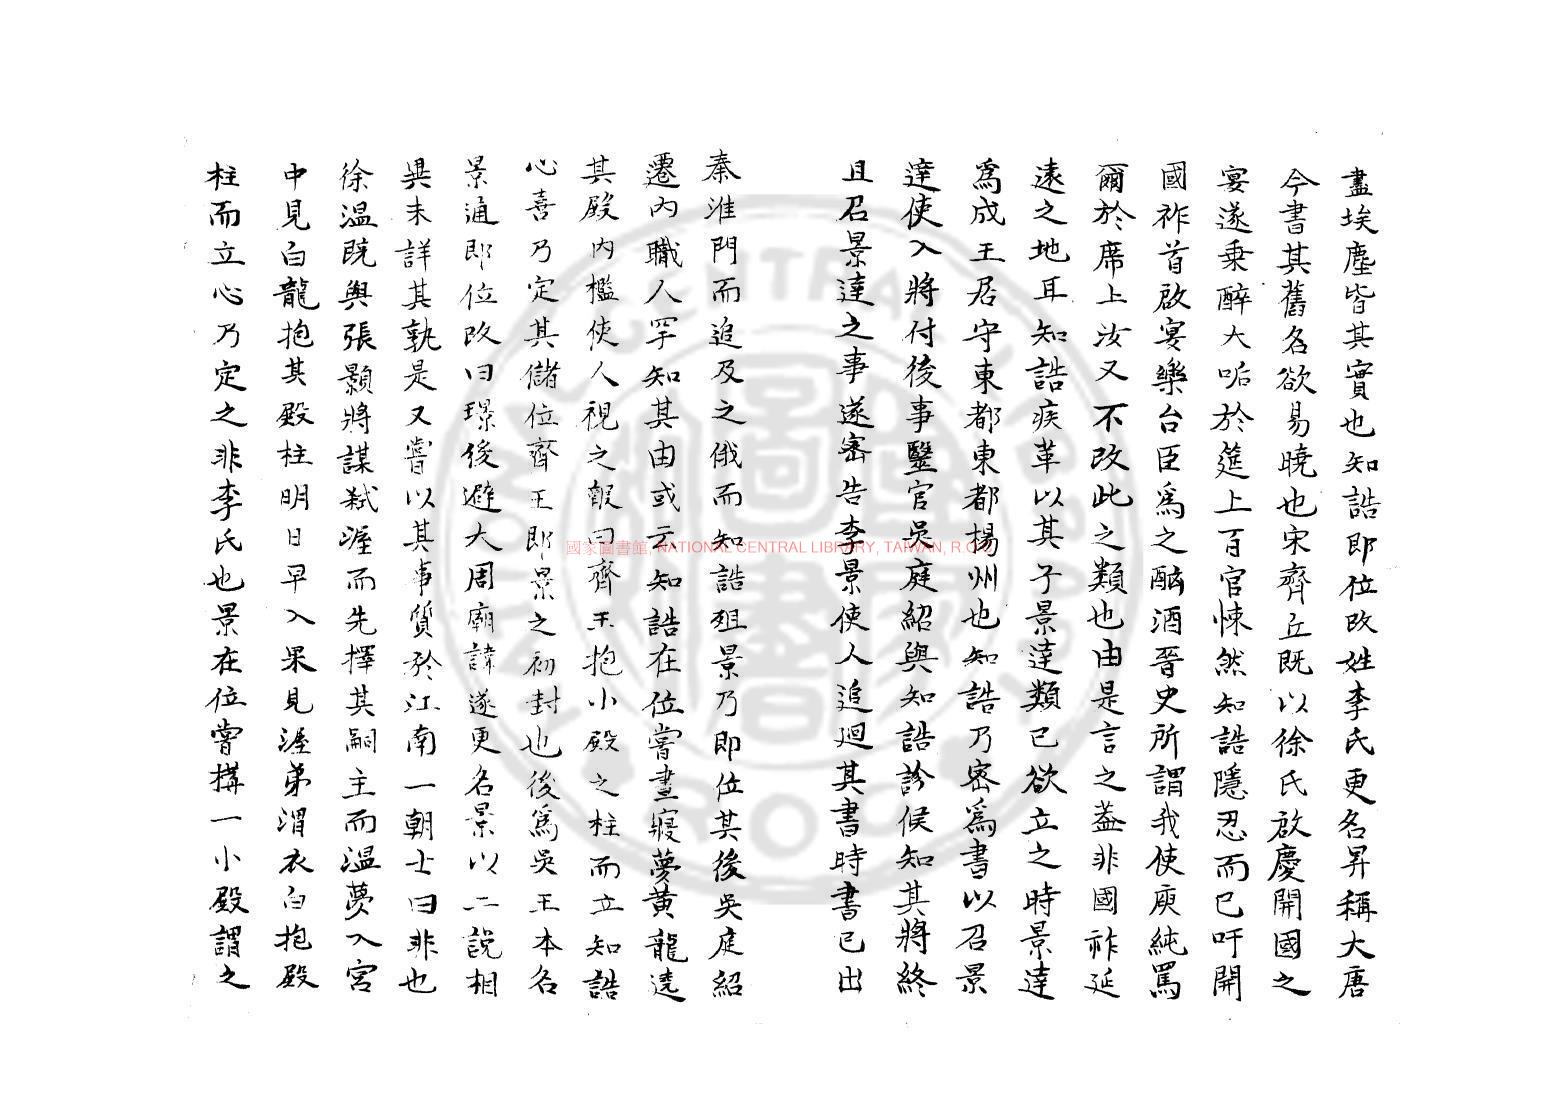 盡埃塵皆其實也知誥即位改姓李氏更名昇稱大唐
今書其舊名欲易曉也宋齊丘既以徐氏啟慶開國之
宴遂乗醉大呧於筵上百官悚然知誥隱忍而已吁開
國祚首啟宴樂台臣爲之酗酒晉史所謂我使庾純罵
爾於席上汝又不改此之類也由是言之蓋非國祚延
遠之地耳知誥疾革以其子景達類已欲立之時景達
爲成王居守東都東都揚州也知誥乃密爲書以召景
達使入將付後事醫官吳庭紹與知誥診候知其將終
且召景達之事遂密告李景使人追迴其書時書已出
秦淮門而追及之俄而知誥殂景乃即位其後吳庭紹
遷內職人罕知其由或云知誥在位嘗晝寢夢黃龍遶
其殿內檻使人視之報曰齊王抱小殿之柱而立知誥
心喜乃定其儲位齊王即景之初封也後爲吳王本名
景通即位改曰璟後避大周廟諱遂更名景以二說相
異未詳其孰是又嘗以其事質於江南一朝士曰非也
徐溫既與張顥將謀弒渥而先擇其嗣主而溫夢入宮
中見白龍抱其殿柱明日早入果見渥弟渭衣白抱殿
柱而立心乃定之非李氏也景在位嘗搆一小殿謂之
國家圖書館, NATIONAL CENTRAL LIBRARY, TAIWAN, R.O.C